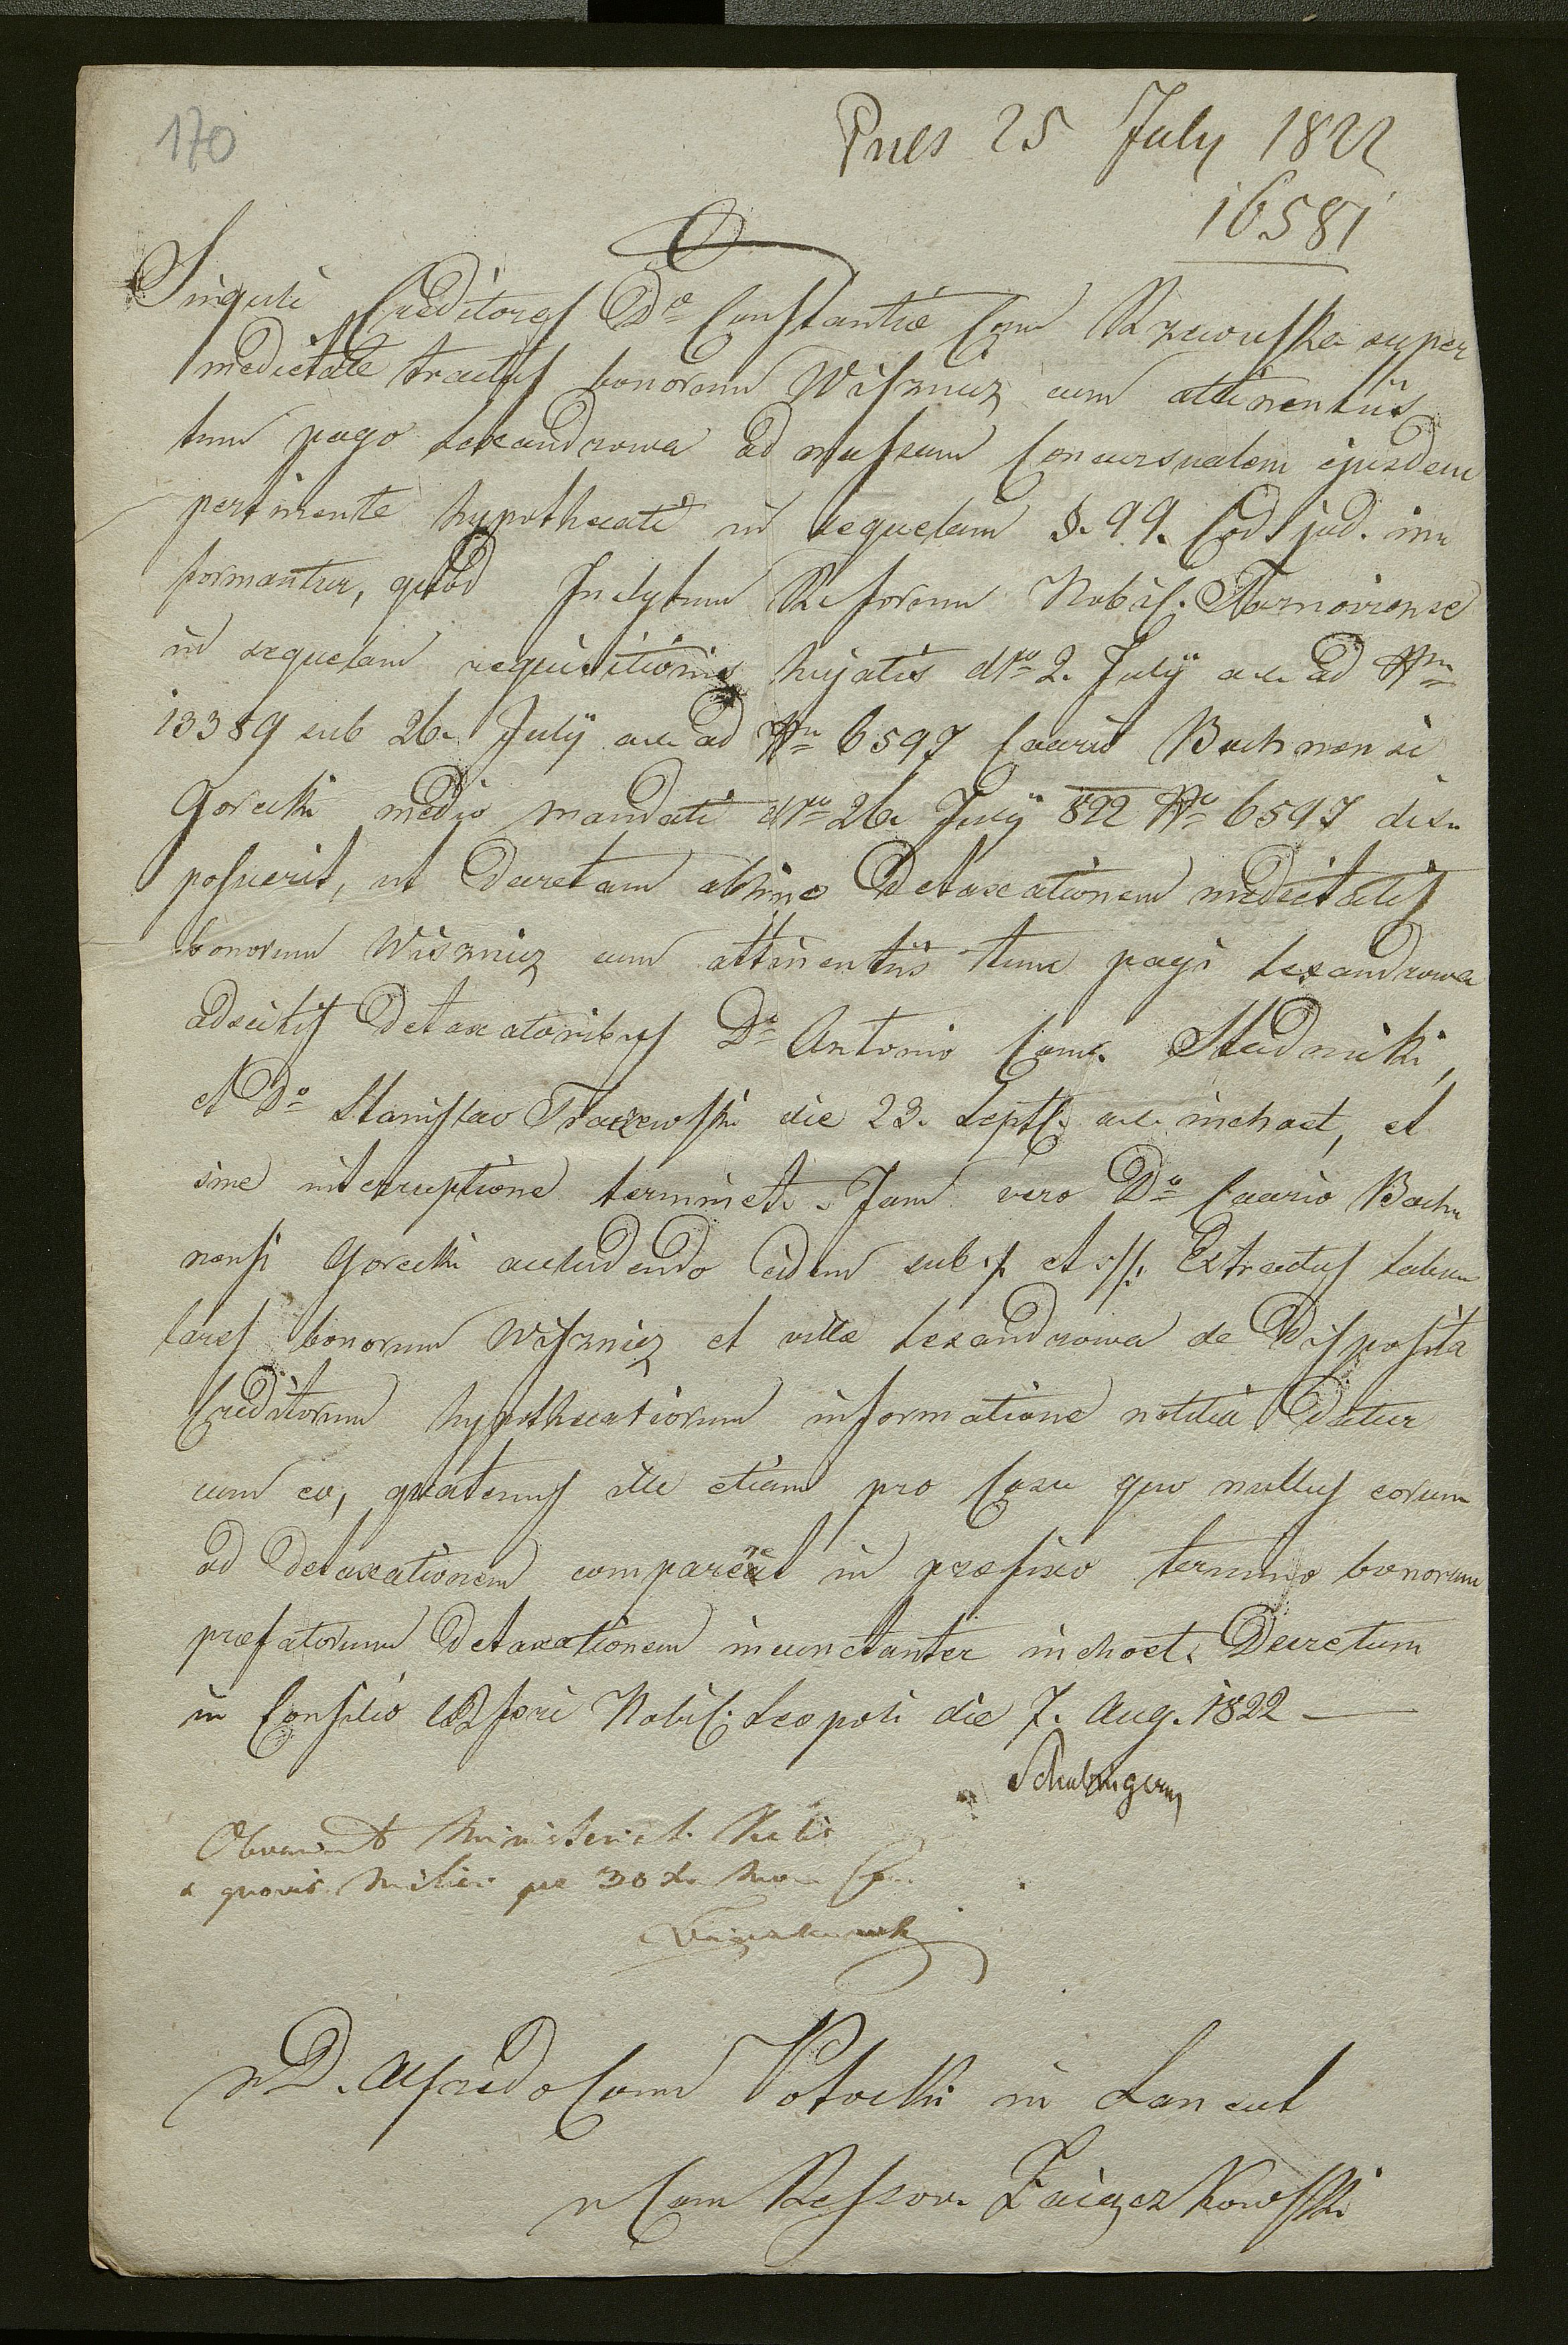 170
Pres 25 July 1822
16581
Singuli Creditores Dae Constantiae Com Rzewuska super
medietate tractus bonorum Wisznicz cum attinentiis
tum pago Lexandrowa ad massam Concursualem ejusdem
pertinente hypothecati in sequelam §. 99. Cod jud. in=
formantur, quod Inclytum Caes forum Nobil. Tarnoviense
in sequelam requisitionis hujatis dto 2. Julÿ a.c. ad Nrm
13389 sub 26. Julÿ a.c. ad Nrm 6597 Caario Bochnensi
Gorecki medio mandati dto 26. Julÿ 822 Nro 6597 dis=
posuerit, ut Decretam abhinc Detaxationem medietatis
bonorum Wisznicz cum attinentiis tum pagi Lexandrowa
adscitis Detaxatoribus Do Antonio Com. Stadnicki,
et Do Stanislao Traczewski die 23. Septb. a.c. inchoet, et
sine interruptione terminet. Jam vero Do Caario Boch=
nensi Gorecki accludendo eidem sub ·/. et ·//. Extractus tabu=
lares bonorum Wisznicz et villae Lexandrowa de Disposita
Creditorum hypothecariorum informatione notitia Datur
cum eo, quatenus ille etiam pro Casu quo nullus eorum
ad Detaxationem compareret in praefixo termino bonorum
praefatorum Detaxationem incunctanter inchoet. Decretum
in Consilio CR fori Nobil. Leopoli die 7. Aug. 1822 —
Schubingeray
Ministerial.
a quovis Miliari per 30 x
D. Alfredo Com Potocki in Lancut
Com Zaigczkowski